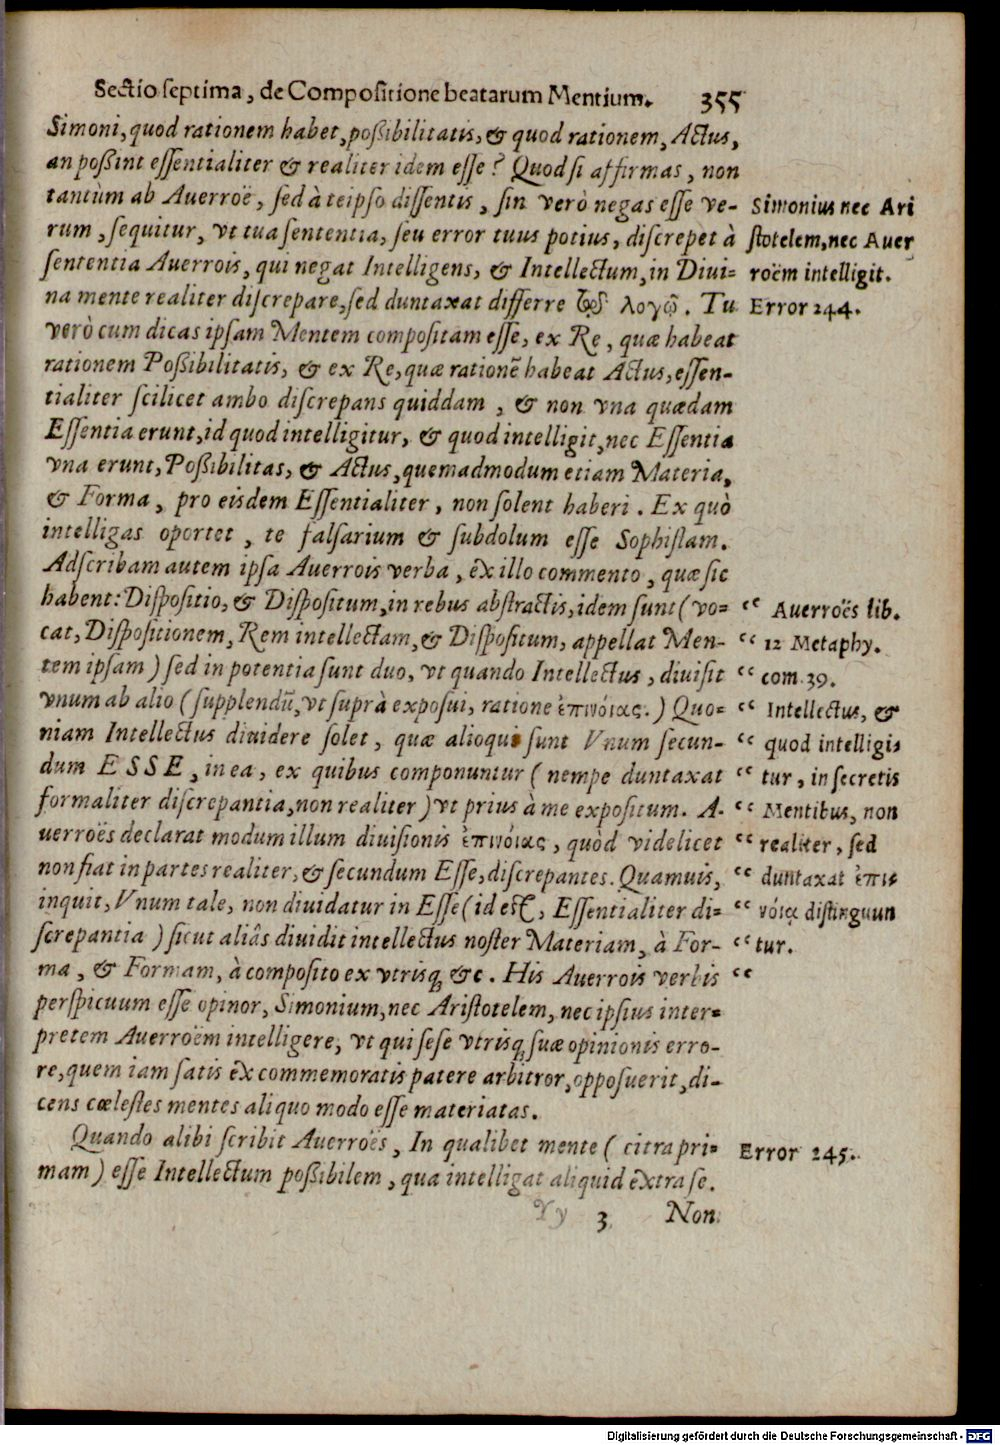 Sectio septima, de Compositione beatarum Mentium. 355
Simoni, quod rationem habet, poßibilitatis, & quod rationem, Actus,
an poßint essentialiter & realiter idem esse? Quod si affirmas, non
tantùm ab Auerroë, sed à teipso dissentis, sin verò negas esse ve-
rum, sequitur, vt tua sententia, seu error tuus potius, discrepet à
sententia Auerrois, qui negat Intelligens, & Intellectum, in Diui-
na mente realiter discrepare, sed duntaxat differre λογῳ. Tu
verò cum dicas ipsam Mentem compositam esse, ex Re, quæ habeat
rationem Poßibilitatis, & ex Re, quæ rationẽ habeat Actus, essen-
tialiter scilicet ambo discrepans quiddam, & non vna quædam
Essentia erunt, id quod intelligitur, & quod intelligit, nec Essentia
vna erunt, Poßibilitas, & Actus, quemadmodum etiam Materia,
& Forma, pro eisdem Essentialiter, non solent haberi. Ex quò
intelligas oportet, te falsarium & subdolum esse Sophistam.
Adscribam autem ipsa Auerrois verba, ex illo commento, quæ sic
habent: Dispositio, & Dispositum, in rebus abstractis, idem sunt (vo-
cat, Dispositionem, Rem intellectam, & Dispositum, appellat Men-
tem ipsam) sed in potentia sunt duo, vt quando Intellectus, diuisit
vnum ab alio (supplendũ, vt suprà exposui, ratione ἐπινόιας.) Quo-
niam Intellectus diuidere solet, quæ alioqui sunt Vnum secun-
dum ESSE, in ea, ex quibus componuntur (nempe duntaxat
formaliter discrepantia, non realiter) vt prius à me expositum. A-
uerroës declarat modum illum diuisionis ἐπινόιας, quòd videlicet
non fiat in partes realiter, & secundum Esse, discrepantes. Quamuis,
inquit, Vnum tale, non diuidatur in Esse (id est, Essentialiter di-
screpantia) sicut aliâs diuidit intellectus noster Materiam, à For-
ma, & Formam, à composito ex vtrisq; &c. His Auerrois verbis
perspicuum esse opinor, Simonium, nec Aristotelem, nec ipsius inter-
pretem Auerroëm intelligere, vt qui sese vtrisq; suæ opinionis erro-
re, quem iam satis ex commemoratis patere arbitror, opposuerit, di-
cens cœlestes mentes aliquo modo esse materiatas.
Quando alibi scribit Auerroës, In qualibet mente (citra pri-
mam) esse Intellectum poßibilem, qua intelligat aliquid extra se.
Yy 3 Non
Simonius nec Ari
stotelem, nec Auer
roëm intelligit.
Error 244.
“ Auerroës lib.
“ 12 Metaphy.
“ com. 39.
“ Intellectus, &
“ quod intelligi
“ tur, in secretis
“ Mentibus, non
“ realiter, sed
“ duntaxat ἐπι
“ νόιᾳ distinguun
“ tur.
“
Error 245.
Digitalisierung gefördert durch die Deutsche Forschungsgemeinschaft - DFG